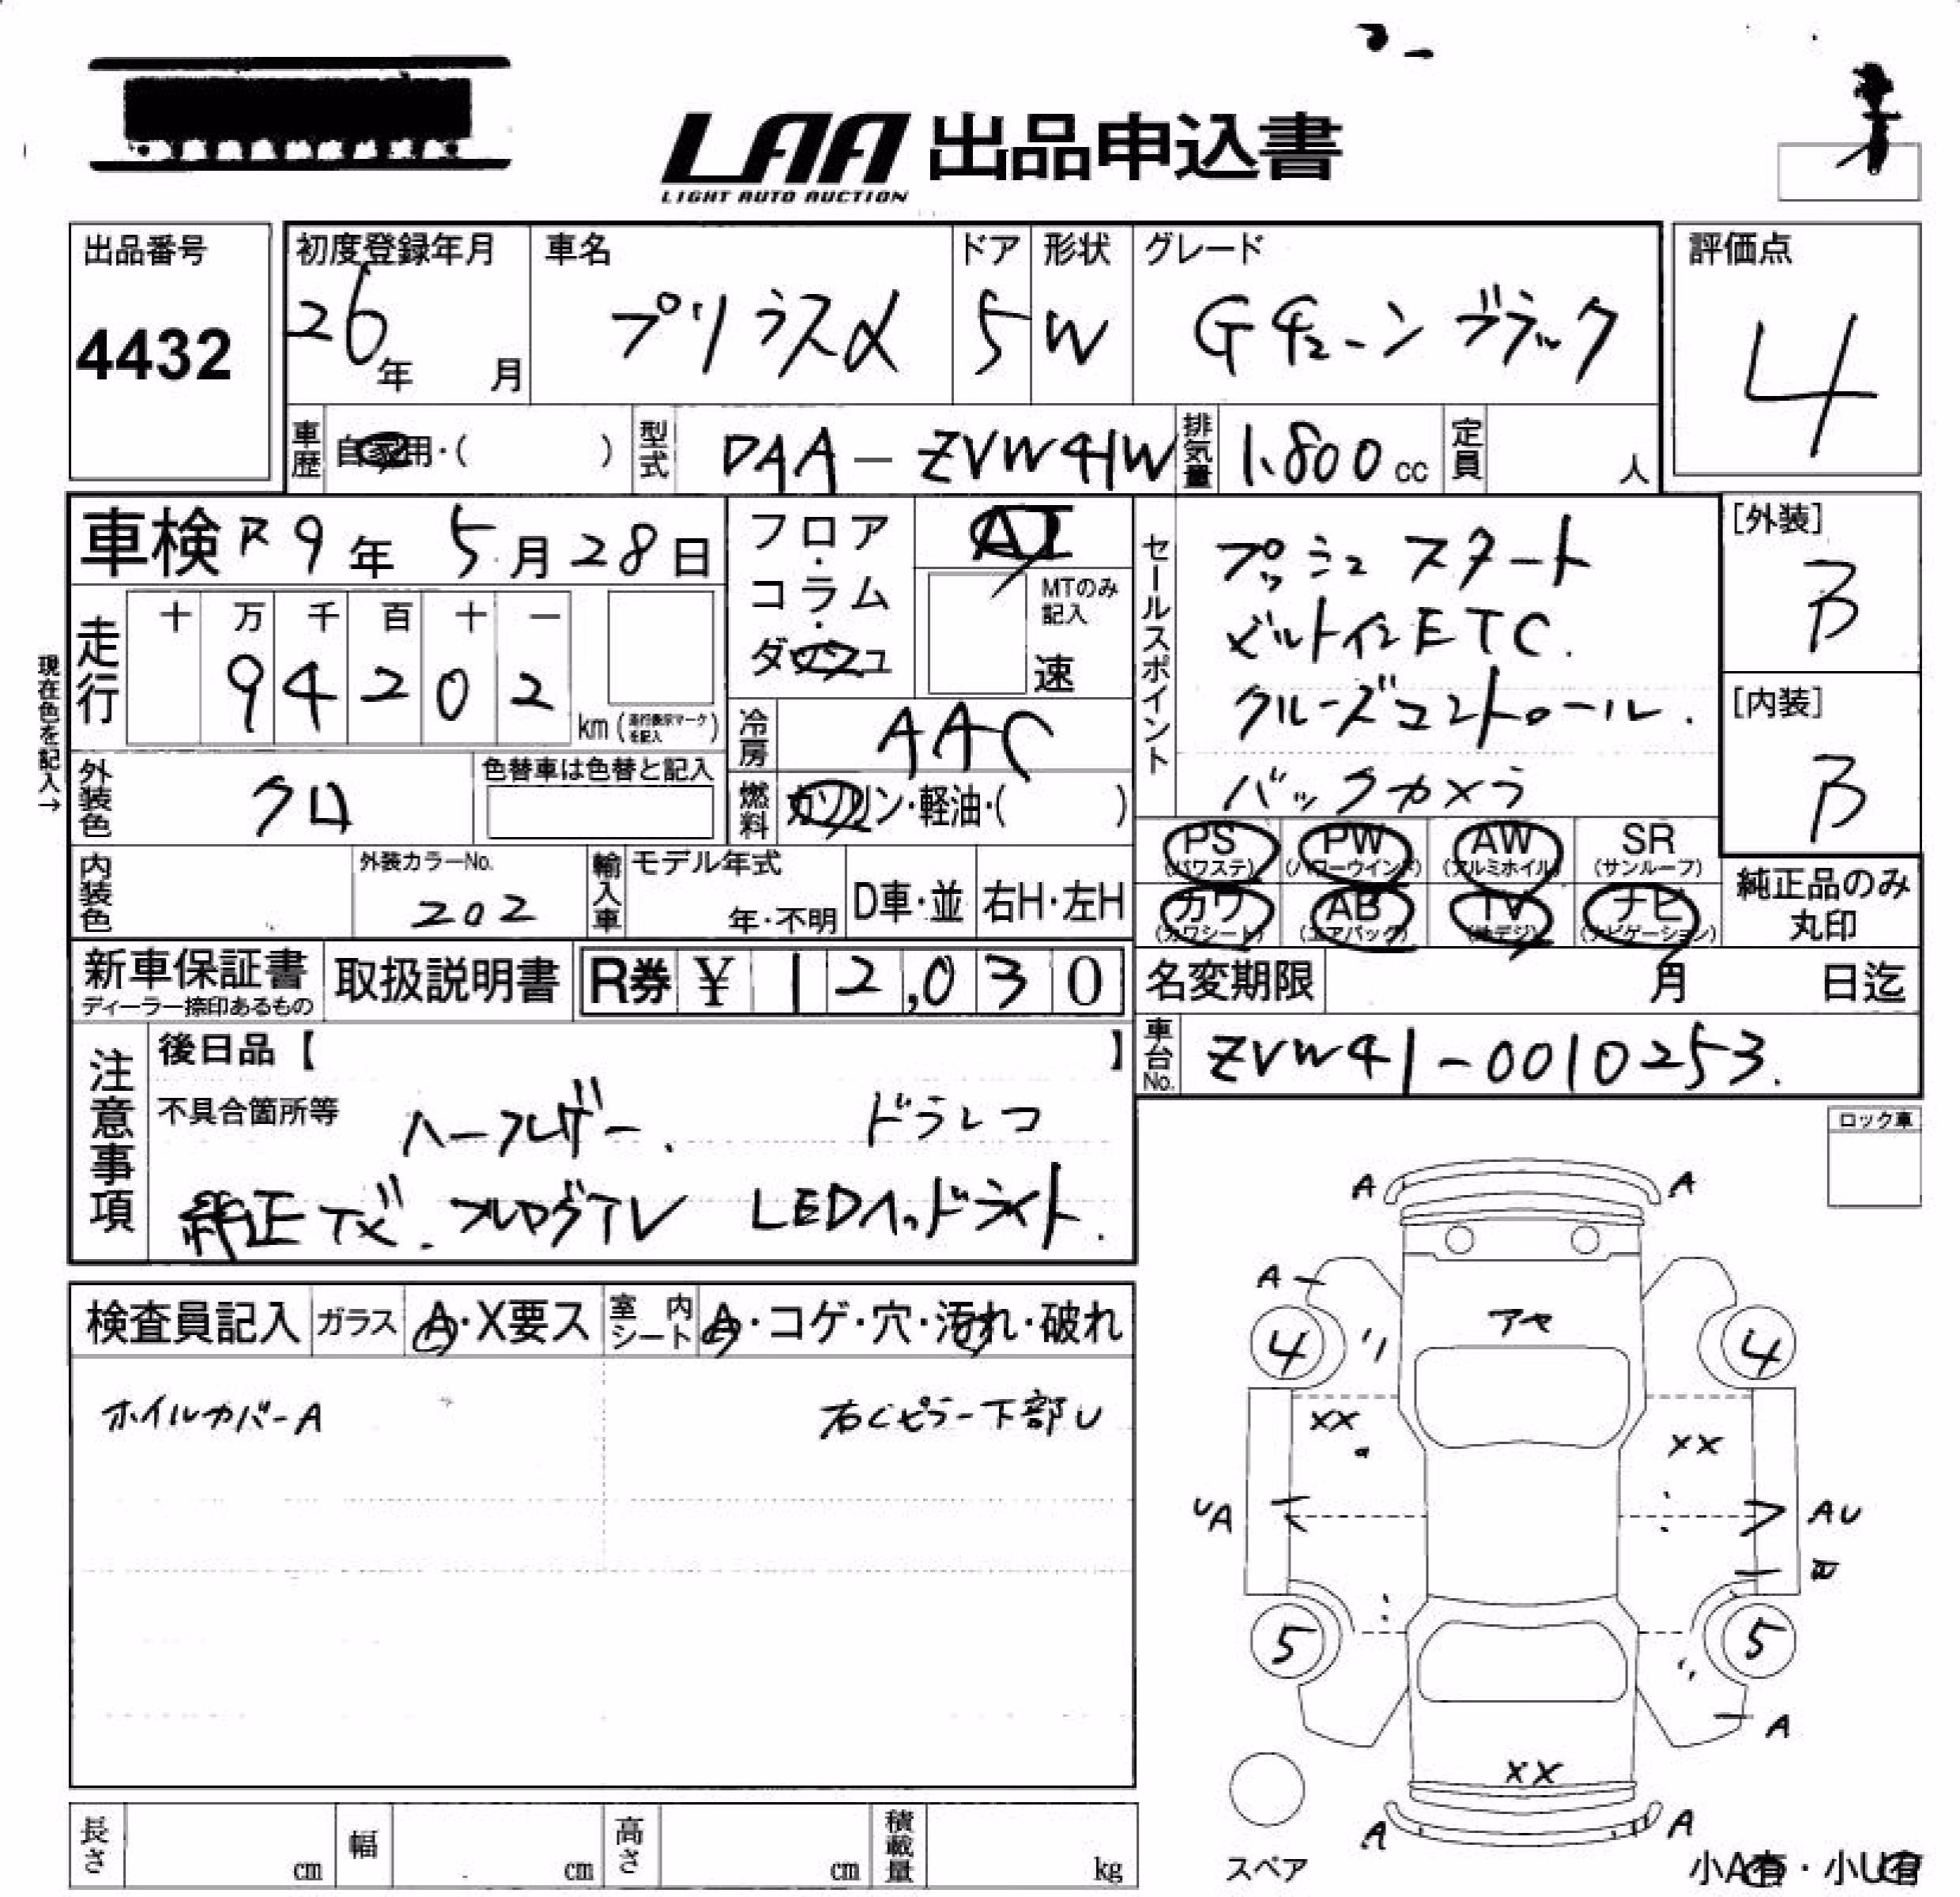 LAA 出品申込書
LIGHT AUTO AUCTION
出品番号
4432
初度登録年月
26年 月
車名
プリウスα
ドア
5
形状
W
グレード
Gチューンブラック
評価点
4
車歴 自家用・( )
型式 DAA-ZVW41W
排気量 1.800cc
定員 人
車検 R9年 5月28日
フロア・コラム・ダッシュ
AT
MTのみ記入
速
走行
十 万 千 百 十 一
9 4 2 0 2
km(走行表示マークを記入)
現在色を記入→
冷房 AAC
外装色 クロ
色替車は色替と記入
燃料 ガソリン・軽油・( )
セールスポイント
プッシュスタート
ビルトインETC.
クルーズコントロール.
バックカメラ
[外装]
B
[内装]
B
PS (パワステ)
PW (パワーウインド)
AW (アルミホイル)
SR (サンルーフ)
カワ (カワシート)
AB (エアバッグ)
TV (地デジ)
ナビ (ナビゲーション)
純正品のみ丸印
内装色
外装カラーNo.
202
輸入車
モデル年式
年・不明
D車・並
右H・左H
新車保証書
ディーラー捺印あるもの
取扱説明書
R券 ¥ 12,030
名変期限 月 日迄
車台No. ZVW41-0010253.
注意事項
後日品【 】
不具合箇所等 ハーフレザー. ドラレコ
純正ナビ. フルセグTV LEDヘッドライト.
ロック車
検査員記入
ガラス A・X要ス
室内シート A・コゲ・穴・汚れ・破れ
ホイルカバーA
右Cピラー下部U
A A
A
アヤ
4 4
XX
XX
UA
AU
5 5
A
XX
A A
スペア
小A有・小U有
長さ cm
幅 cm
高さ cm
積載量 kg